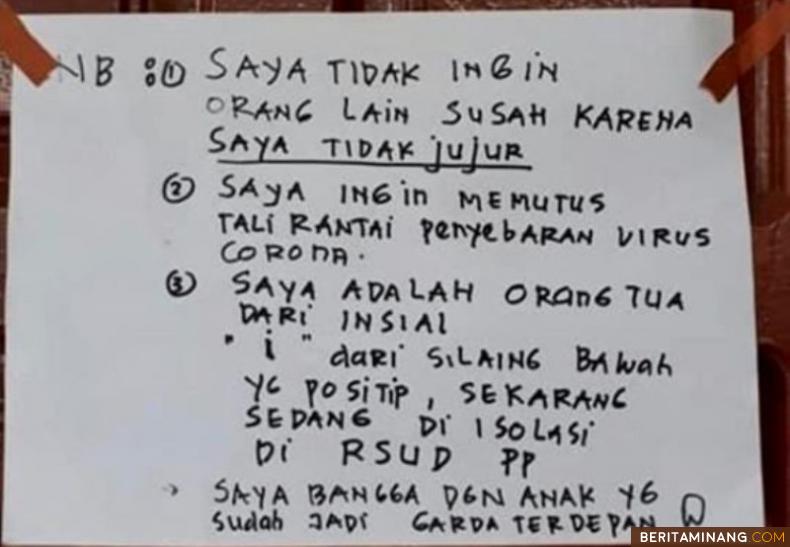 NB : ① SAYA TIDAK INGIN
ORANG LAIN SUSAH KARENA
SAYA TIDAK JUJUR
② SAYA INGIN MEMUTUS
TALI RANTAI PENYEBARAN VIRUS
CORONA.
③ SAYA ADALAH ORANG TUA
DARI INSIAL
" i " dari SILAING BAWAH
YG POSITIP, SEKARANG
SEDANG DI ISOLASI
DI RSUD PP
→ SAYA BANGGA DGN ANAK YG
sudah JADI GARDA TERDEPAN
BERITAMINANG.COM